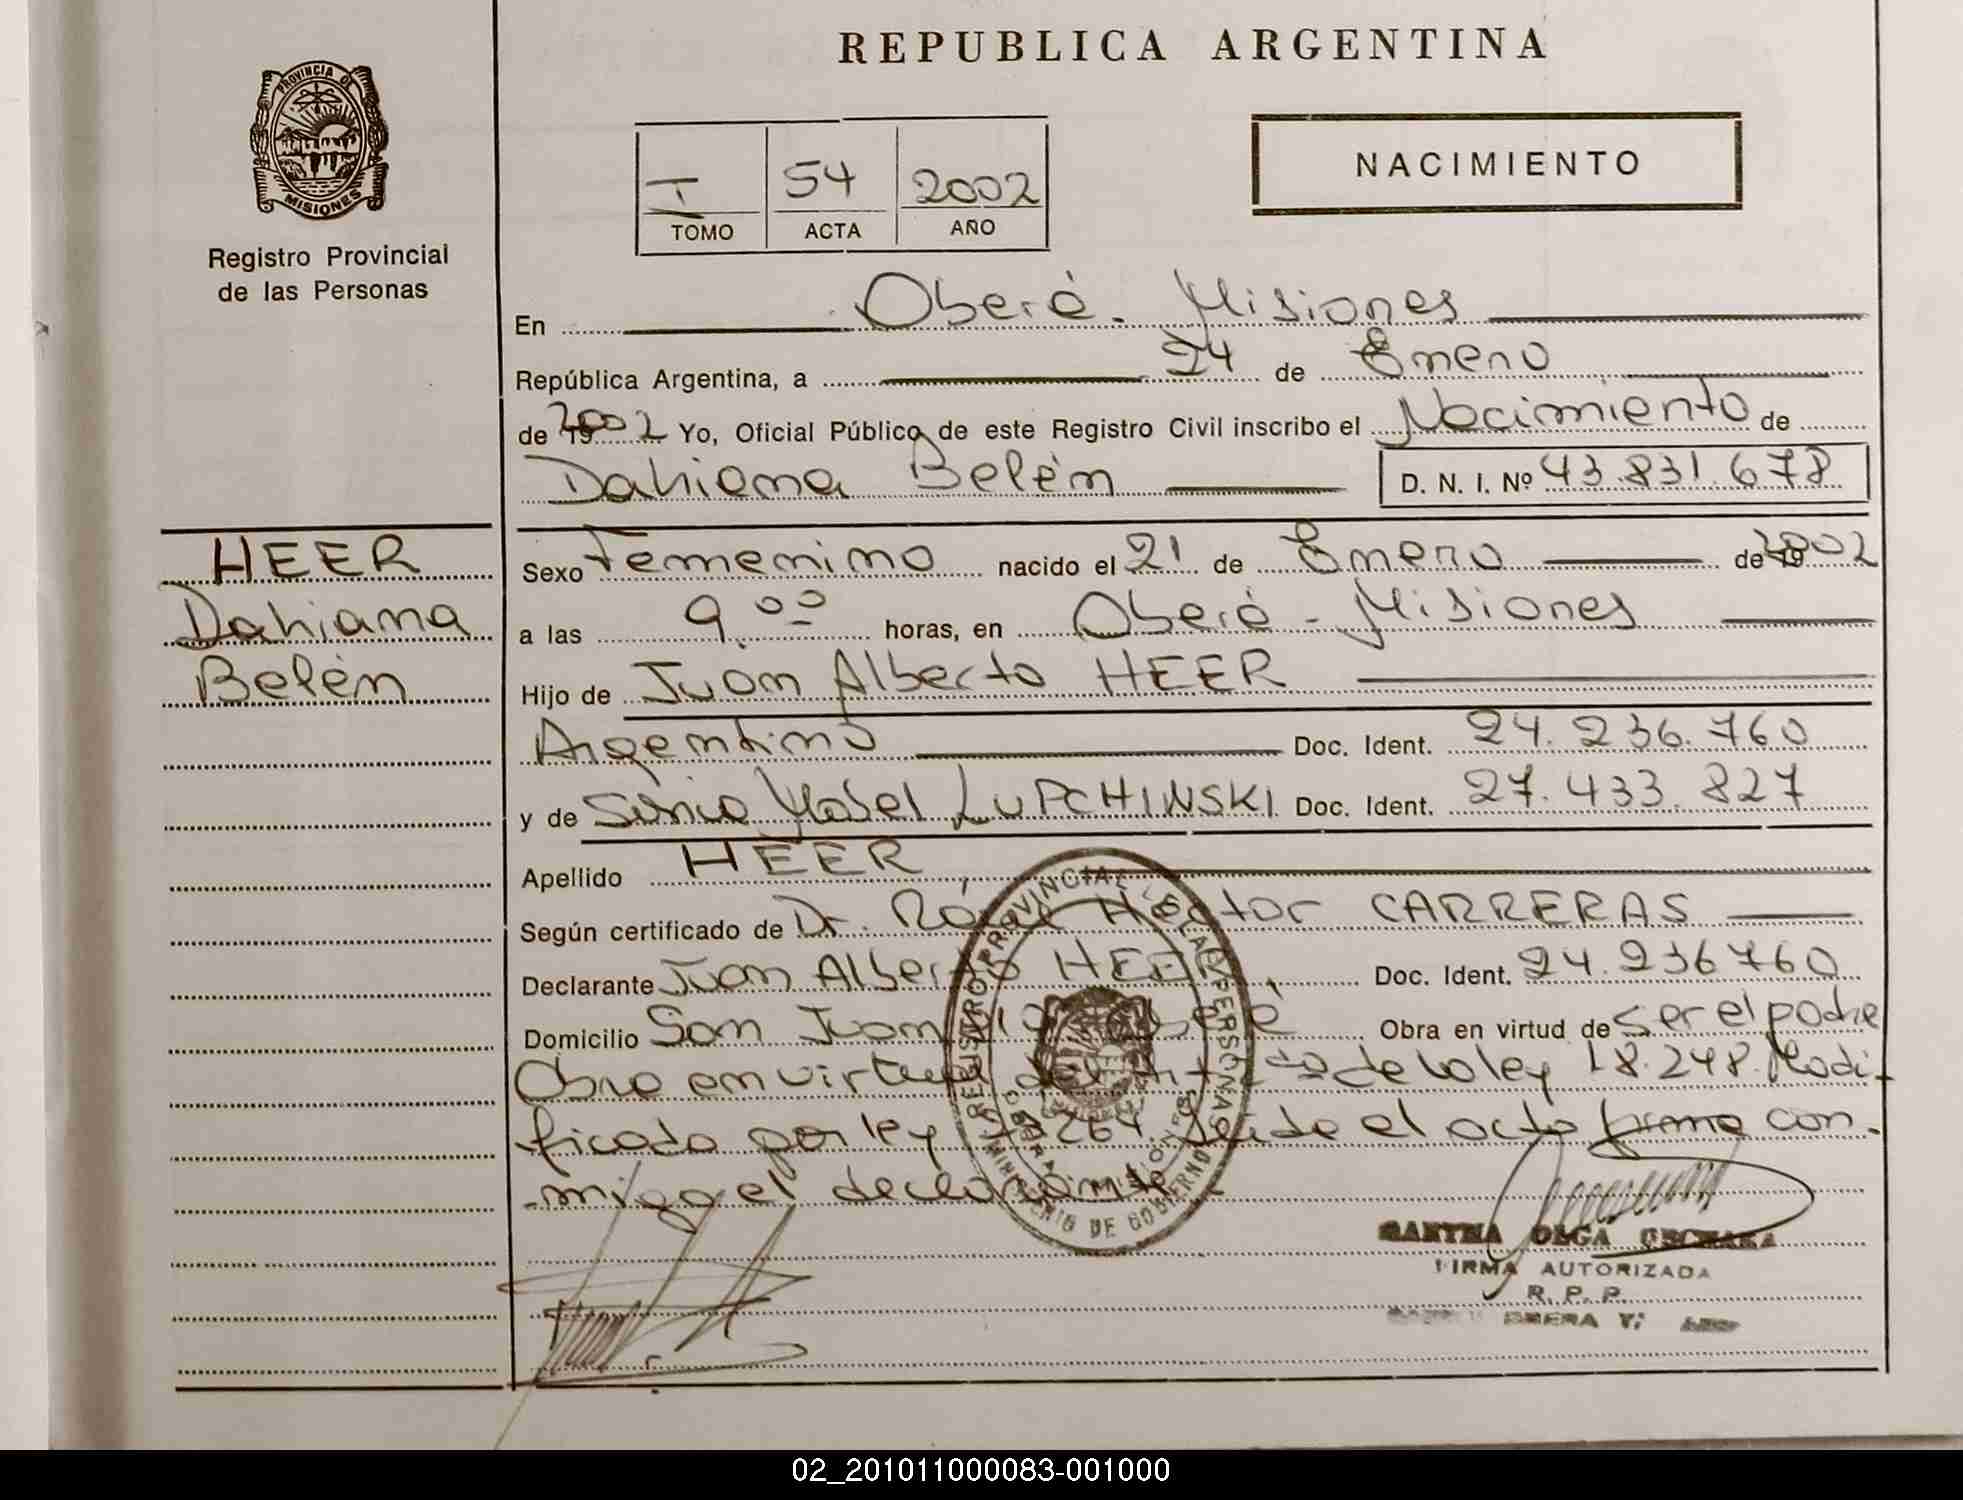 REPUBLICA ARGENTINA
PROVINCIA DE MISIONES
Registro Provincial
de las Personas
I 54 2002
TOMO ACTA AÑO
NACIMIENTO
En Oberá - Misiones
República Argentina, a 24 de Enero
de 2002 Yo, Oficial Público de este Registro Civil inscribo el Nacimiento de
Dahiana Belén D. N. I. Nº 43.831.678
HEER
Dahiana
Belén
Sexo Femenino nacido el 21 de Enero de 2002
a las 9.00 horas, en Oberá - Misiones
Hijo de Juan Alberto HEER
Argentino Doc. Ident. 24.236.760
y de Sonia Mabel LUPCHINSKI Doc. Ident. 27.433.827
Apellido HEER
Según certificado de Dr. Héctor CARRERAS
Declarante Juan Alberto HEER Doc. Ident. 24.236760
Domicilio San Juan Oberá Obra en virtud de ser el padre
Obra en virtud del de la ley 18.248. Modi-
ficada por ley 23264. Leída el acta firma con-
migo el declarante
REGISTRO PROVINCIAL DE LAS PERSONAS
MINISTERIO DE GOBIERNO
OLGA
FIRMA AUTORIZADA
R. P. P.
OBERA
02_201011000083-001000